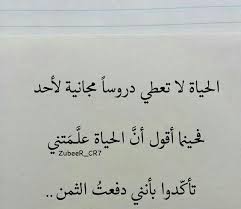 الحياة لا تعطي دروساً مجانية لأحد
فحينما أقول أنَّ الحياة علَّمَتني
ZubeeR_CR7
تأكّدوا بأنني دفعتُ الثمن ..